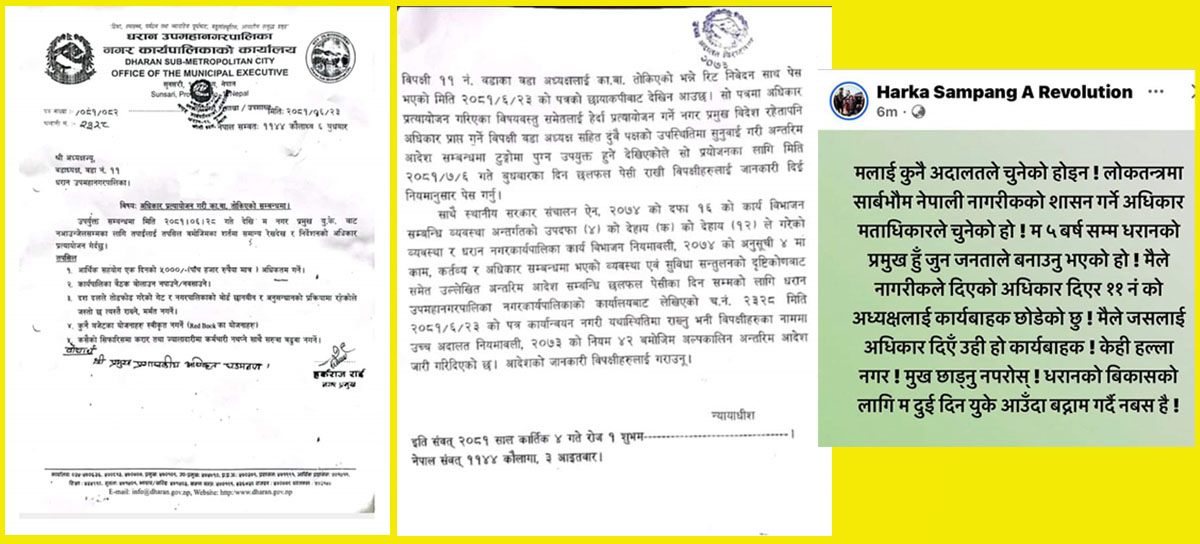 धरान उपमहानगरपालिका
नगर कार्यपालिकाको कार्यालय
DHARAN SUB-METROPOLITAN CITY
OFFICE OF THE MUNICIPAL EXECUTIVE
Nepal
पत्र संख्या :- २०८१/०८२
मिति: २०८१/०६/२३
चलानी नं. :- २३२८
नेपाल सम्वत: ११४४ कौलाथ्व ६ बुधवार
श्री अध्यक्षज्यू,
वडाध्यक्ष, वडा नं. ११
धरान उपमहानगरपालिका।
विषय: अधिकार प्रत्यायोजन गरी का.बा. तोकिएको सम्बन्धमा।
उपर्युक्त सम्बन्धमा मिति २०८१।०६।२८ गते देखि म नगर प्रमुख यु.के. बाट
नआउन्जेलसम्मका लागि तपाईंलाई तपसिल बमोजिमका शर्तमा सामान्य रेखदेख र निर्देशनको अधिकार
प्रत्यायोजन गर्दछु।
तपसिल
१. आर्थिक सहयोग एक दिनको ५०००/-(पाँच हजार रुपैया मात्र । अधिकतम गर्ने।
२. कार्यपालिका बैठक बोलाउन नपाउने/नबसाउने।
३. दश दलले तोडफोड गरेको गेट र नगरपालिकाको बोर्ड छानवीन र अनुसन्धानको प्रक्रियामा रहेकोले
जस्तो छ त्यस्तै राख्ने, मर्मत नगर्ने।
४. कुनै बजेटका योजनाहरु स्वीकृत नगर्ने (Red Book का योजनाहरु)
५. कसैको सिफारिसमा करार तथा ज्यालादारीमा कर्मचारी नथप्ने साथै सरुवा बढुवा नगर्ने।
बोधार्थ
श्री प्रमुख प्रशासकीय अधिकृत
हर्कराज राई
नगर प्रमुख
E-mail: info@dharan.gov.np, Website: http:/www.dharan.gov.np
२०७३
विपक्षी ११ नं. वडाका वडा अध्यक्षलाई का.बा. तोकिएको भन्ने रिट निवेदन साथ पेस
भएको मिति २०८१/६/२३ को पत्रको छायाकपीबाट देखिन आउछ। सो पत्रमा अधिकार
प्रत्यायोजन गरिएका विषयवस्तु समेतलाई हेर्दा प्रत्यायोजन गर्ने नगर प्रमुख विदेश रहेतापनि
अधिकार प्राप्त गर्ने विपक्षी वडा अध्यक्ष सहित दुवै पक्षको उपस्थितिमा सुनुवाई गरी अन्तरिम
आदेश सम्बन्धमा टुङ्गोमा पुग्न उपयुक्त हुने देखिएकोले सो प्रयोजनका लागि मिति
२०८१/७/६ गते बुधबारका दिन छलफल पेसी राखी विपक्षीहरुलाई जानकारी दिई
नियमानुसार पेस गर्नु।
साथै स्थानीय सरकार संचालन ऐन, २०७४ को दफा १६ को कार्य विभाजन
सम्बन्धि व्यवस्था अन्तरगतको उपदफा (४) को देहाय (क) को देहाय (१२) ले गरेको
व्यवस्था र धरान नगरकार्यपालिका कार्य विभाजन नियमावली, २०७४ को अनुसूची ४ मा
काम, कर्तव्य र अधिकार सम्बन्धमा भएको व्यवस्था एवं सुविधा सन्तुलनको दृष्टिकोणबाट
समेत उल्लेखित अन्तरिम आदेश सम्बन्धि छलफल पेसीका दिन सम्मको लागि धरान
उपमहानगरपालिका नगरकार्यपालिकाको कार्यालयबाट लेखिएको च.नं. २३२८ मिति
२०८१/६/२३ को पत्र कार्यान्वयन नगरी यथास्थितिमा राख्नु भनी विपक्षीहरुका नाममा
उच्च अदालत नियमावली, २०७३ को नियम ४२ बमोजिम अल्पकालिन अन्तरिम आदेश
जारी गरिदिएको छ। आदेशको जानकारी विपक्षीहरुलाई गराउनू।
न्यायाधीश
इति संवत् २०८१ साल कार्तिक ४ गते रोज १ शुभम------------------------।
नेपाल संवत् ११४४ कौलागा, ३ आइतबार।
Harka Sampang A Revolution
6m
मलाई कुनै अदालतले चुनेको होइन ! लोकतन्त्रमा
सार्बभौम नेपाली नागरीकको शासन गर्ने अधिकार
मताधिकारले चुनेको हो ! म ५ बर्ष सम्म धरानको
प्रमुख हुँ जुन जनताले बनाउनु भएको हो ! मैले
नागरीकले दिएको अधिकार दिएर ११ नं को
अध्यक्षलाई कार्यबाहक छोडेको छु ! मैले जसलाई
अधिकार दिएँ उही हो कार्यबाहक ! केही हल्ला
नगर ! मुख छाड्नु नपरोस् ! धरानको बिकासको
लागि म दुई दिन युके आउँदा बद्नाम गर्दै नबस है !